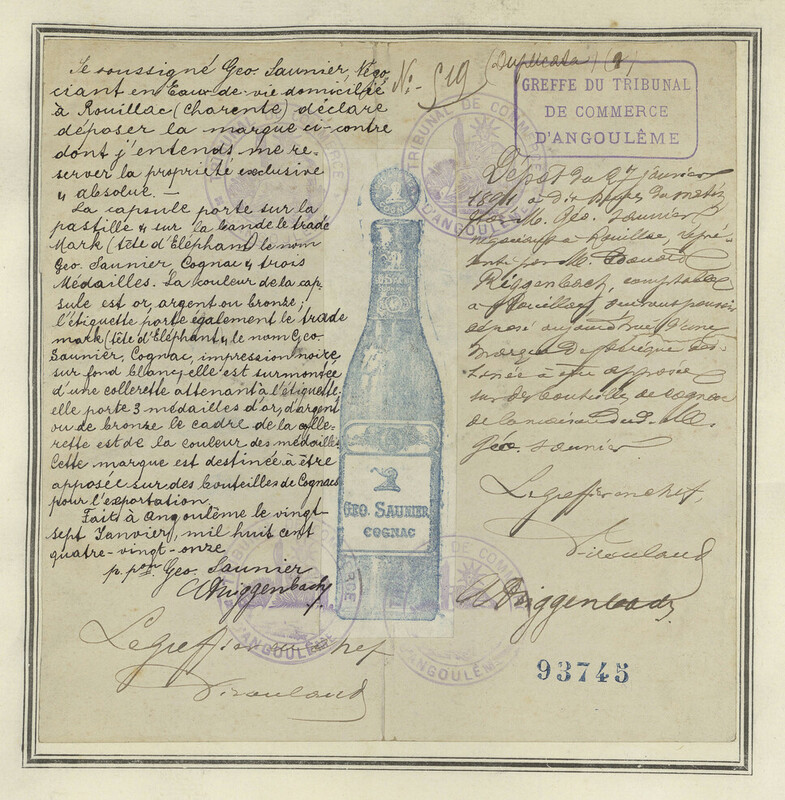 Je soussigné Geo. Saunier, Négo,
ciant en Eaux-de-vie domicilié
à Rouillac (Charente) déclare
déposer la marque ci-contre
dont j'entends me re-
server la propriété exclusive
& absolue. —
La capsule porte sur la
pastille & sur la bande le trade
Mark (tête d'Eléphant) le nom
Geo. Saunier Cognac & trois
Médailles. La couleur de la cap-
sule est or, argent ou bronze;
l'étiquette porte également le trade
mark (tête d'Eléphant & le nom Geo.
Saunier, Cognac, impression noire
sur fond blanc, elle est surmontée
d'une collerette attenant à l'étiquette.
elle porte 3 médailles d'or, d'argent
ou de bronze le cadre de la colle-
rette est de la couleur des médailles
Cette marque est destinée à être
apposée sur des bouteilles de Cognac
pour l'exportation.
Fait à Angoulême le vingt-
sept Janvier, mil huit cent
quatre-vingt-onze
p. pon Geo. Saunier
Riggenbach
Le greffier en chef
N° 519 (Duplicata)
GREFFE DU TRIBUNAL
DE COMMERCE
D'ANGOULÊME
Dépôt du 27 janvier
1891 à dix heures du matin
M. Geo. Saunier
négociant à Rouillac, repré-
senté par M. Edouard
Riggenbach, comptable
à Rouillac, aujourd'hui d'une
marque de fabrique des-
tinée à être apposée
sur des bouteilles de cognac
de la maison dud. M.
Geo. Saunier
Le greffier en chef,
Riggenbach
93745
COGNAC
GEO. SAUNIER
COGNAC
TRIBUNAL DE COMMERCE
D'ANGOULÊME
TRIBUNAL DE COMMERCE
D'ANGOULÊME
TRIBUNAL DE COMMERCE
D'ANGOULÊME
TRIBUNAL DE COMMERCE
D'ANGOULÊME